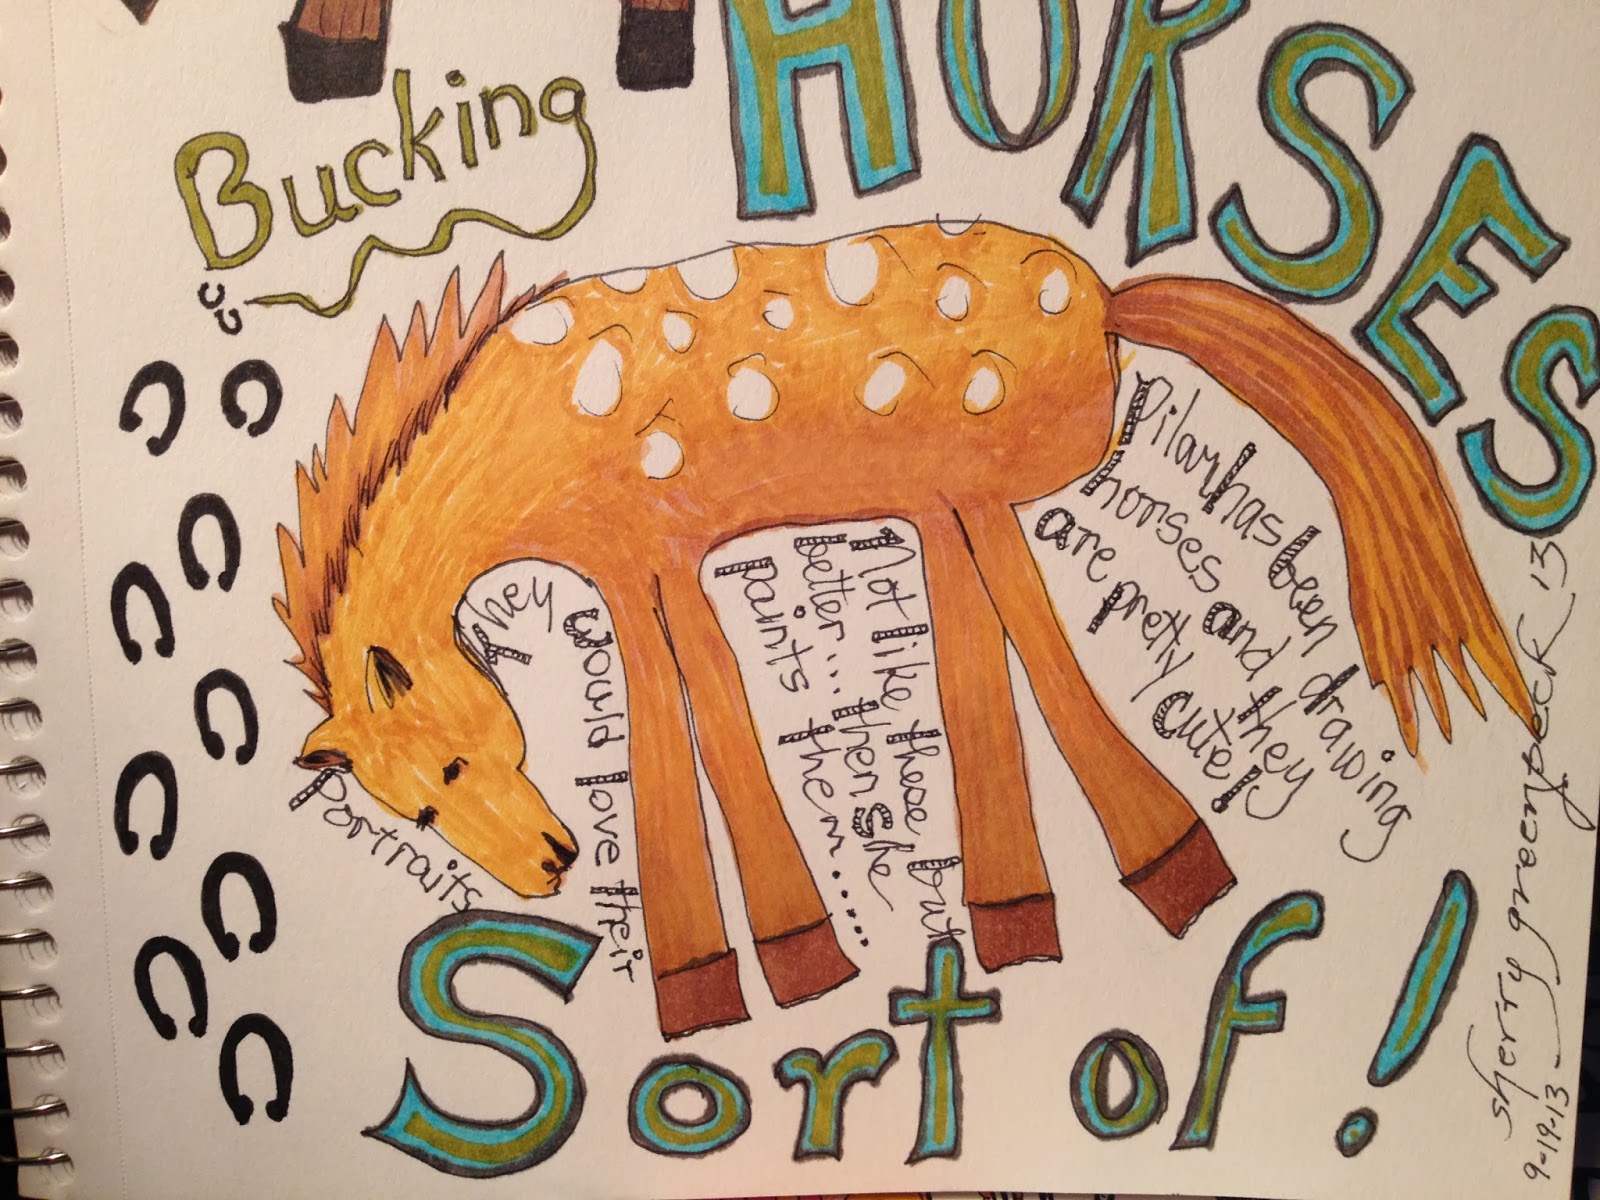 HORSES
Bucking
Pilar has been drawing
horses and they
are pretty cute!
Not like these but
better... then she
paints them......
They would love their
Portraits
Sort of!
sherry greenpeck 13
9-19-13